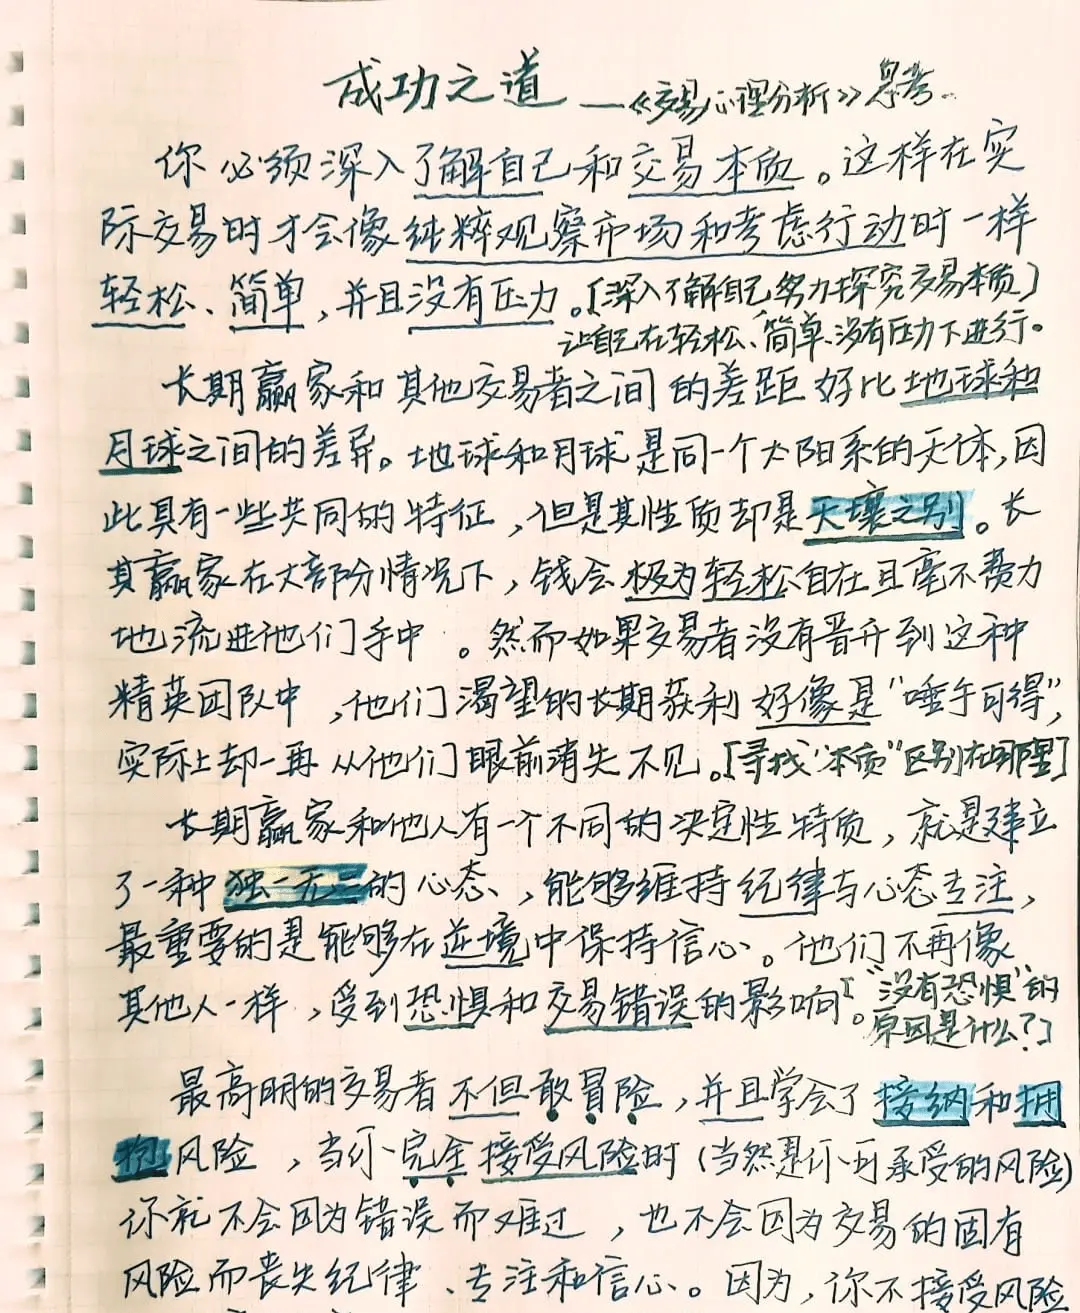 成功之道 ——《交易心理分析》思考.
你必须深入了解自己和交易本质。这样在实
际交易时才会像纯粹观察市场和考虑行动时一样
轻松、简单,并且没有压力。[深入了解自己,努力探究交易本质]
让自己在轻松、简单、没有压力下进行。
长期赢家和其他交易者之间的差距好比地球和
月球之间的差异。地球和月球是同一个太阳系的天体,因
此具有一些共同的特征,但是其性质却是天壤之别。长
其赢家在大部份情况下,钱会极为轻松自在且毫不费力
地流进他们手中。然而如果交易者没有晋升到这种
精英团队中,他们渴望的长期获利好像是“唾手可得”,
实际上却一再从他们眼前消失不见。[寻找“本质”区别在哪里]
长期赢家和他人有一个不同的决定性特质,就是建立
了一种独一无二的心态、,能够维持纪律与心态专注,
最重要的是能够在逆境中保持信心。他们不再像
其他人一样,受到恐惧和交易错误的影响。[“没有恐惧”的
原因是什么?]
最高明的交易者不但敢冒险,并且学会了接纳和拥
抱风险,当你完全接受风险时(当然是你可承受的风险)
你就不会因为错误而难过,也不会因为交易的固有
风险而丧失纪律、专注和信心。因为,你不接受风险